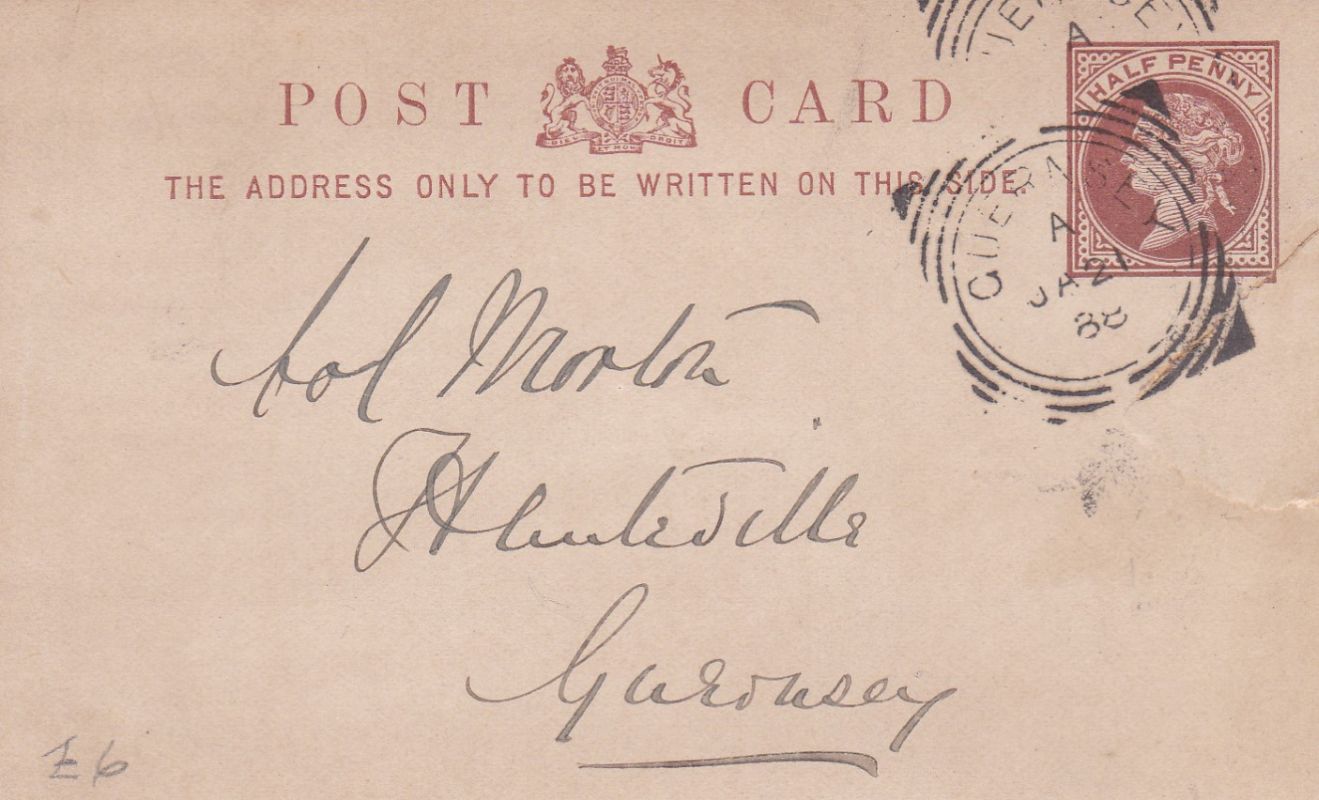 GUERNSEY
A
POST CARD
HALF PENNY
THE ADDRESS ONLY TO BE WRITTEN ON THIS SIDE.
GUERNSEY
A
JA 21
88
Col Morton
Hauteville
Guernsey
£6